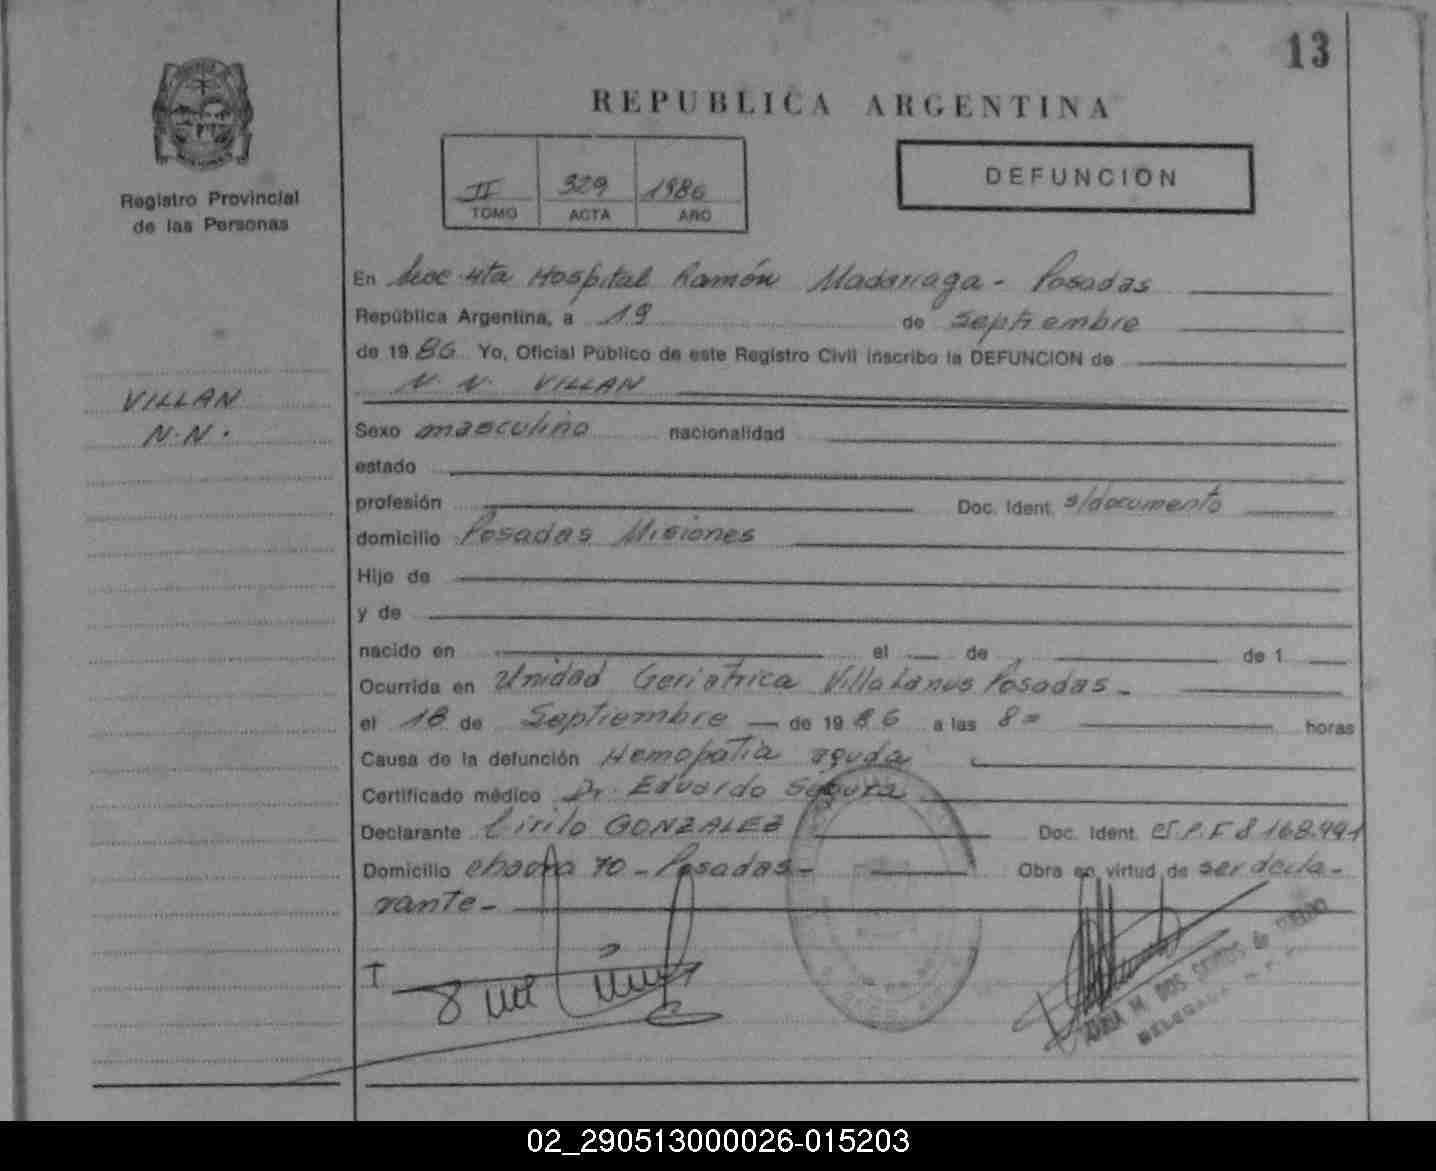 13
REPUBLICA ARGENTINA
Registro Provincial
de las Personas
II 329 1986
TOMO ACTA AÑO
DEFUNCION
VILLAN
N.N.
En Secc 4ta Hospital Ramón Madariaga - Posadas
República Argentina, a 19 de Septiembre
de 1986 Yo, Oficial Público de este Registro Civil inscribo la DEFUNCION de
N. N. VILLAN
Sexo masculino nacionalidad
estado
profesión Doc. Ident. s/documento
domicilio Posadas Misiones
Hijo de
y de
nacido en el de de 1
Ocurrida en Unidad Geriatrica Villa Lanus Posadas -
el 18 de Septiembre de 1986 a las 8= horas
Causa de la defunción Hemopatia aguda
Certificado médico Dr. Eduardo Segura
Declarante Cirilo GONZALEZ Doc. Ident. 8168.991
Domicilio 70 - Posadas - Obra en virtud de ser decla-
rante -
DOS SANTOS de
02_290513000026-015203